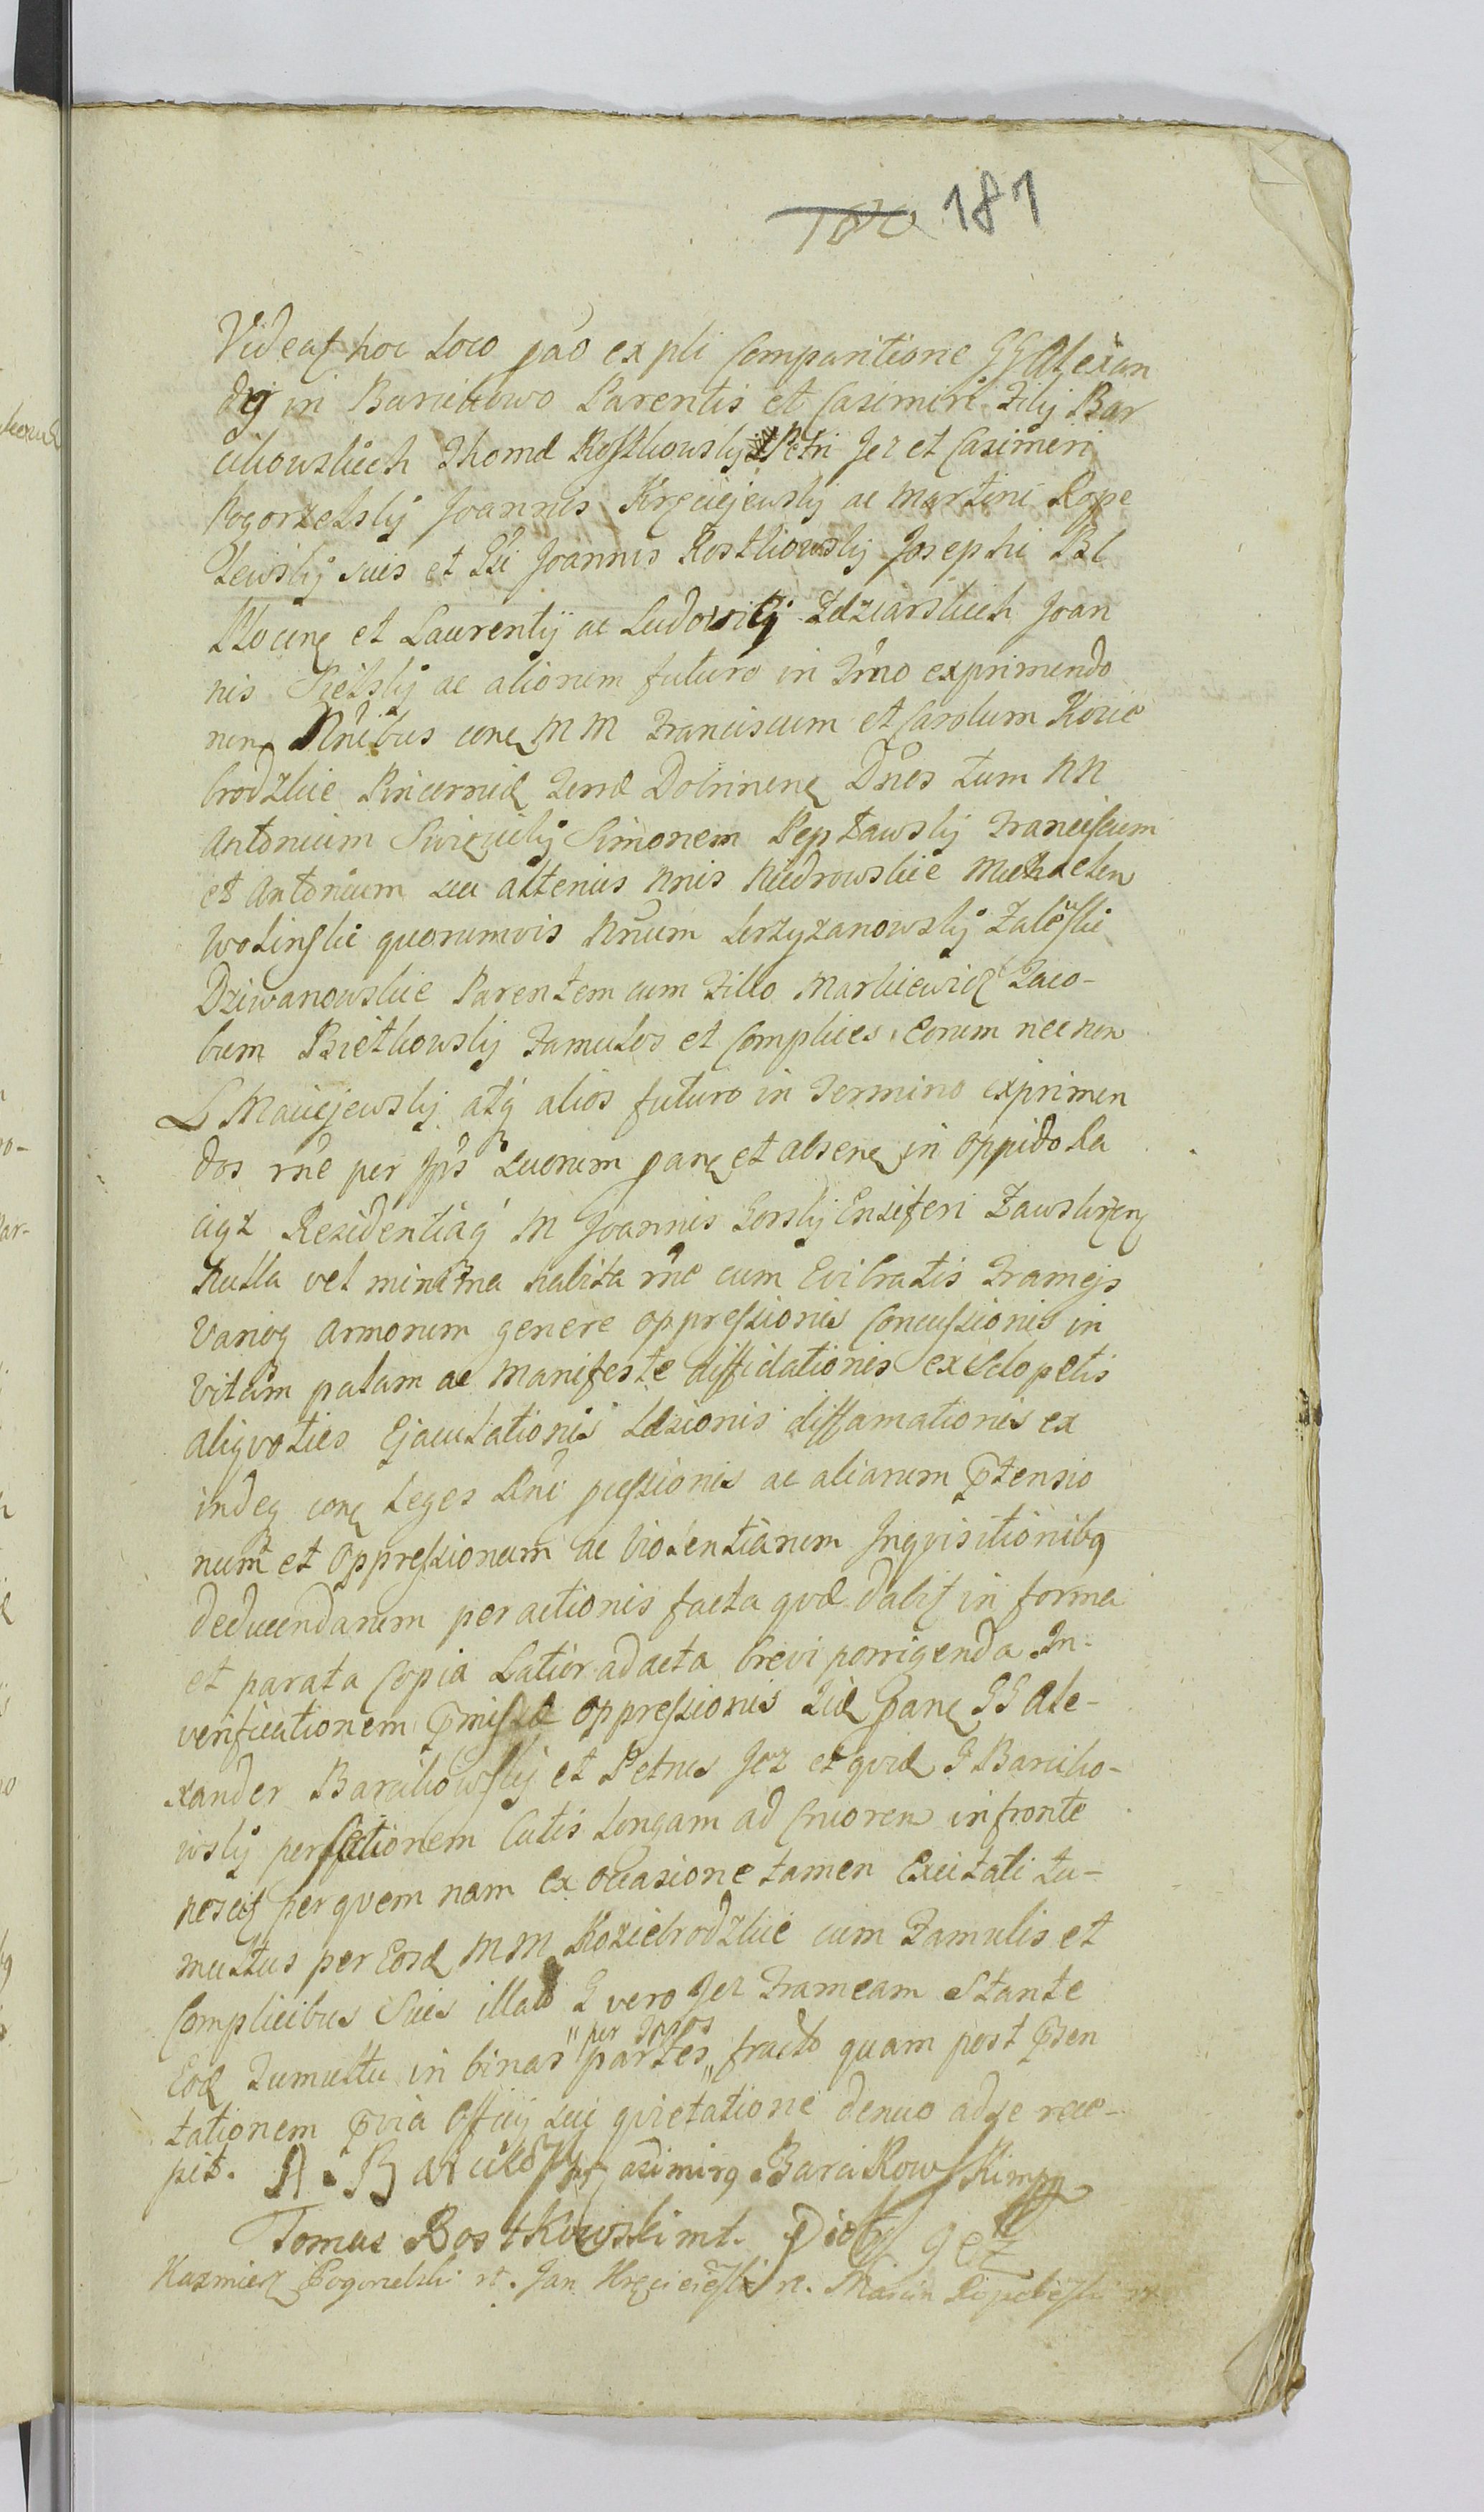 181
Videat hoc Loco pao ex pli Comparitione GG Alexan
drij in Barcikowo Parentis et Casimiri Filij Bar
cikowskich Thomæ Rostkowskij Petri Jez et Casimiri
Pogorzelskij Joannis Kręciejewskij ac Martini Rope
lewskij suis et Joannis Rostkowskij Josephi
et Laurentij ac Ludovici Zdziarskich Joan
nis ac aliorum futuro in Trno exprimendo
rum Nnibus conq MM Franciscum et Carolum Kozie
brodzkie Pincernidæ Terræ Dobrinenq Dnos tum NN
Antonium Simonem Franciscum
et Antonium seu alterius Nnis Niedrowskie Michaelem
Wolinskie quorumvis Nnium Krzyzanowskij Zaleskie
Dziwanowskie Parentem cum Fillo Markiewicz Jaco-
bum Bietkowskij Famulos et Complices Eorum nec non
L Maciejewskij atq alios futuro in Termino exprimen
dos rne per Jps quorum panq et absenq in oppido Ra
ciąz Residentiaq M Joannis Gorskij Ensiferi Zawskrzenq
Nulla vel minima habita rne cum Evibratis Frameis
Varioq Armorum genere oppressionis Concussionis in
Vitam palam ac Manifeste diffidationis ex Sclopetis
aliqvoties Ejaculationis Læzionis diffamationis ex
indeq conq Leges Rni pussionis ac aliarum ptensio
num et Oppressionum ac Violentiarum Inqvisitionibq
deducendarum peractionis facta qvæ dabit in forma
et parata Copia Latior ad acta brevi porrigenda In-
verificationem pmissæ Oppressionis Iid panq GG Ale-
xander Barcikowskij et Petrus Jez et qvid G Barciko-
wskij per sectionem Cutis Longam ad Cruorem in fronte
nescit per qvem nam ex occasione tamen Excitati tu-
multus per Eosd MM Koziebrodzkie cum Famulis et
Complicibus Suis illato G vero Jez Frameam Stante
Eod Tumultu in binas partes per Ipsos fracto quam post psen
tationem pvia Officij sui qvietatione denuo ad se rece-
pit. A. Barcikowski Casimirq Barcikowski mpp
Tomas Rostkowski mt. Piotr Jez
Kazmierz Pogorzelski rt. Jan Kręcieieski rt. Marcin Ropelewski rt